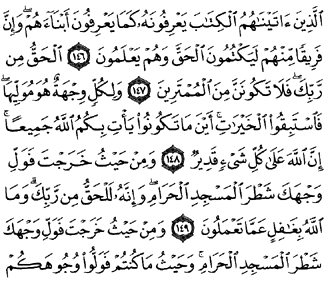 الَّذِينَ ءَاتَيْنَاهُمُ الْكِتَابَ يَعْرِفُونَهُ كَمَا يَعْرِفُونَ أَبْنَاءَهُمْ وَإِنَّ
فَرِيقًا مِنْهُمْ لَيَكْتُمُونَ الْحَقَّ وَهُمْ يَعْلَمُونَ ١٤٦ الْحَقُّ مِن
رَبِّكَ فَلَا تَكُونَنَّ مِنَ الْمُمْتَرِينَ ١٤٧ وَلِكُلٍّ وِجْهَةٌ هُوَ مُوَلِّيهَا
فَاسْتَبِقُوا الْخَيْرَاتِ أَيْنَ مَا تَكُونُوا يَأْتِ بِكُمُ اللَّهُ جَمِيعًا
إِنَّ اللَّهَ عَلَى كُلِّ شَيْءٍ قَدِيرٌ ١٤٨ وَمِنْ حَيْثُ خَرَجْتَ فَوَلِّ
وَجْهَكَ شَطْرَ الْمَسْجِدِ الْحَرَامِ وَإِنَّهُ لَلْحَقُّ مِن رَبِّكَ وَمَا
اللَّهُ بِغَافِلٍ عَمَّا تَعْمَلُونَ ١٤٩ وَمِنْ حَيْثُ خَرَجْتَ فَوَلِّ وَجْهَكَ
شَطْرَ الْمَسْجِدِ الْحَرَامِ وَحَيْثُ مَا كُنْتُمْ فَوَلُّوا وُجُوهَكُمْ